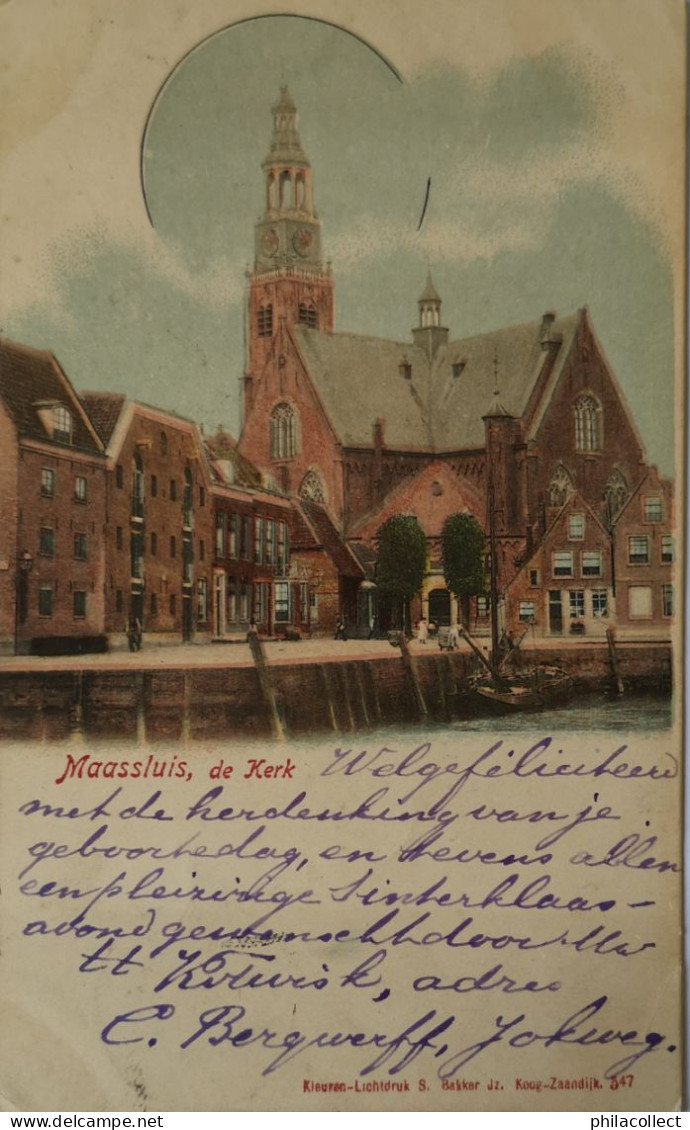 Maassluis, de Kerk Welgefeliciteerd
met de herdenking van je
geboortedag, en tevens allen
een pleizirige Sinterklaas-
avond gewenscht door Uw
tt Kotwisk, adres
C. Bergwerff, Jokweg.
Kleuren-Lichtdruk S. Bakker Jz. Koog-Zaandijk. 547
philacollect